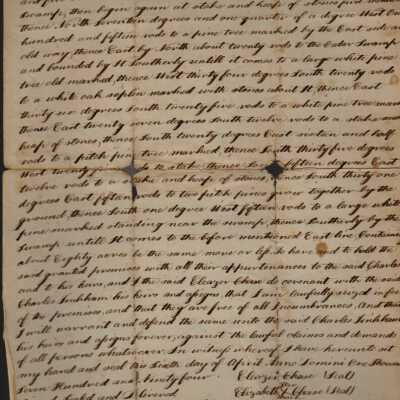 Swamp, then begin again at stake and heap of stones
thence North seventeen degrees and one quarter of a degree West One
hundred and fifteen rods to a pine tree marked by the East side an
old way, thence East by North about twenty rods to the Cedar Swamp
and bounded by it Southerly untill it comes to a large white pine
tree old marked, thence West thirty four degrees South twenty rods
to a white oak saplin marked with stones about it, thence East
thirty six degrees South twenty five rods to a white pine tree mark
thence East twenty seven degrees South twelve rods to a stake and
heap of stones, thence South twenty degrees East sixteen and half
rods to a pitch pine tree marked, thence South thirty five degrees
West twenty rods to stake thence South fifteen degrees East
twelve rods to a stake and heap of stones, thence South thirty one
degrees East fifteen rods to two pitch pines grow together by the
ground, thence South one degree West fifteen rods to a large white
pine marked standing near the swamp, thence Southerly by the
Swamp untill it comes to the before mentioned East line Containing
about Eighty acres be the same more or less To have and to hold the
said granted premises with all their appurtenances to the said Charles
and to his heirs, and I the said Eleazer Chase do covenant with the said
Charles his heirs and assigns that I am lawfully seized in fee
of the premises, and that they are free of all Incumbrances, And that
I will warrant and defend the same unto the said Charles
his heirs and assigns forever, against the lawful claims and demands
of all persons whatsoever. In witness whereof I have hereunto set
my hand and seal this Sixth day of April Anno Domini One thousand
Seven Hundred and Ninety four. Eleazer Chase (Seal)
Sealed and delivered Elizabeth Chase (Seal)